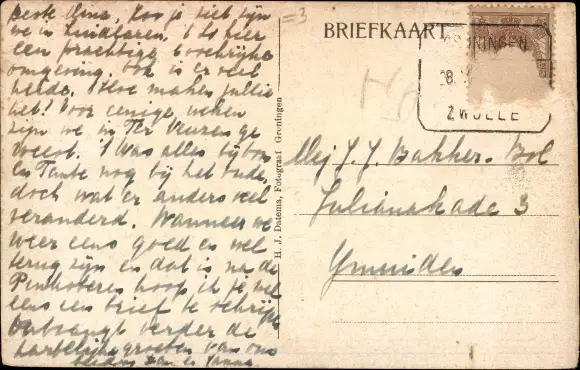 Beste Oma, Zoo je ziet zijn
we in Zuidlaren. 't Is hier
een prachtige boschrijke
omgeving. Ook is er veel
heide. Hoe maken jullie
het! Voor eenige weken
zijn we in Ter Neuzen ge
weest. 't Was alles bij Oom
en Tante nog bij het oude,
doch wat er anders veel
veranderd. Wanneer we
weer eens goed en wel
terug zijn en dat is na de
Pinksteren hoop ik je wel
eens een brief te schrijven
Ontvangt verder de
hartelijke groeten van ons
beiden
=3
BRIEFKAART
GRONINGEN
8.
ZWOLLE
H. J. Datema, Fotograaf Groningen
Mej J. J. Bakker-Bol
Julianakade 3
Ymuiden